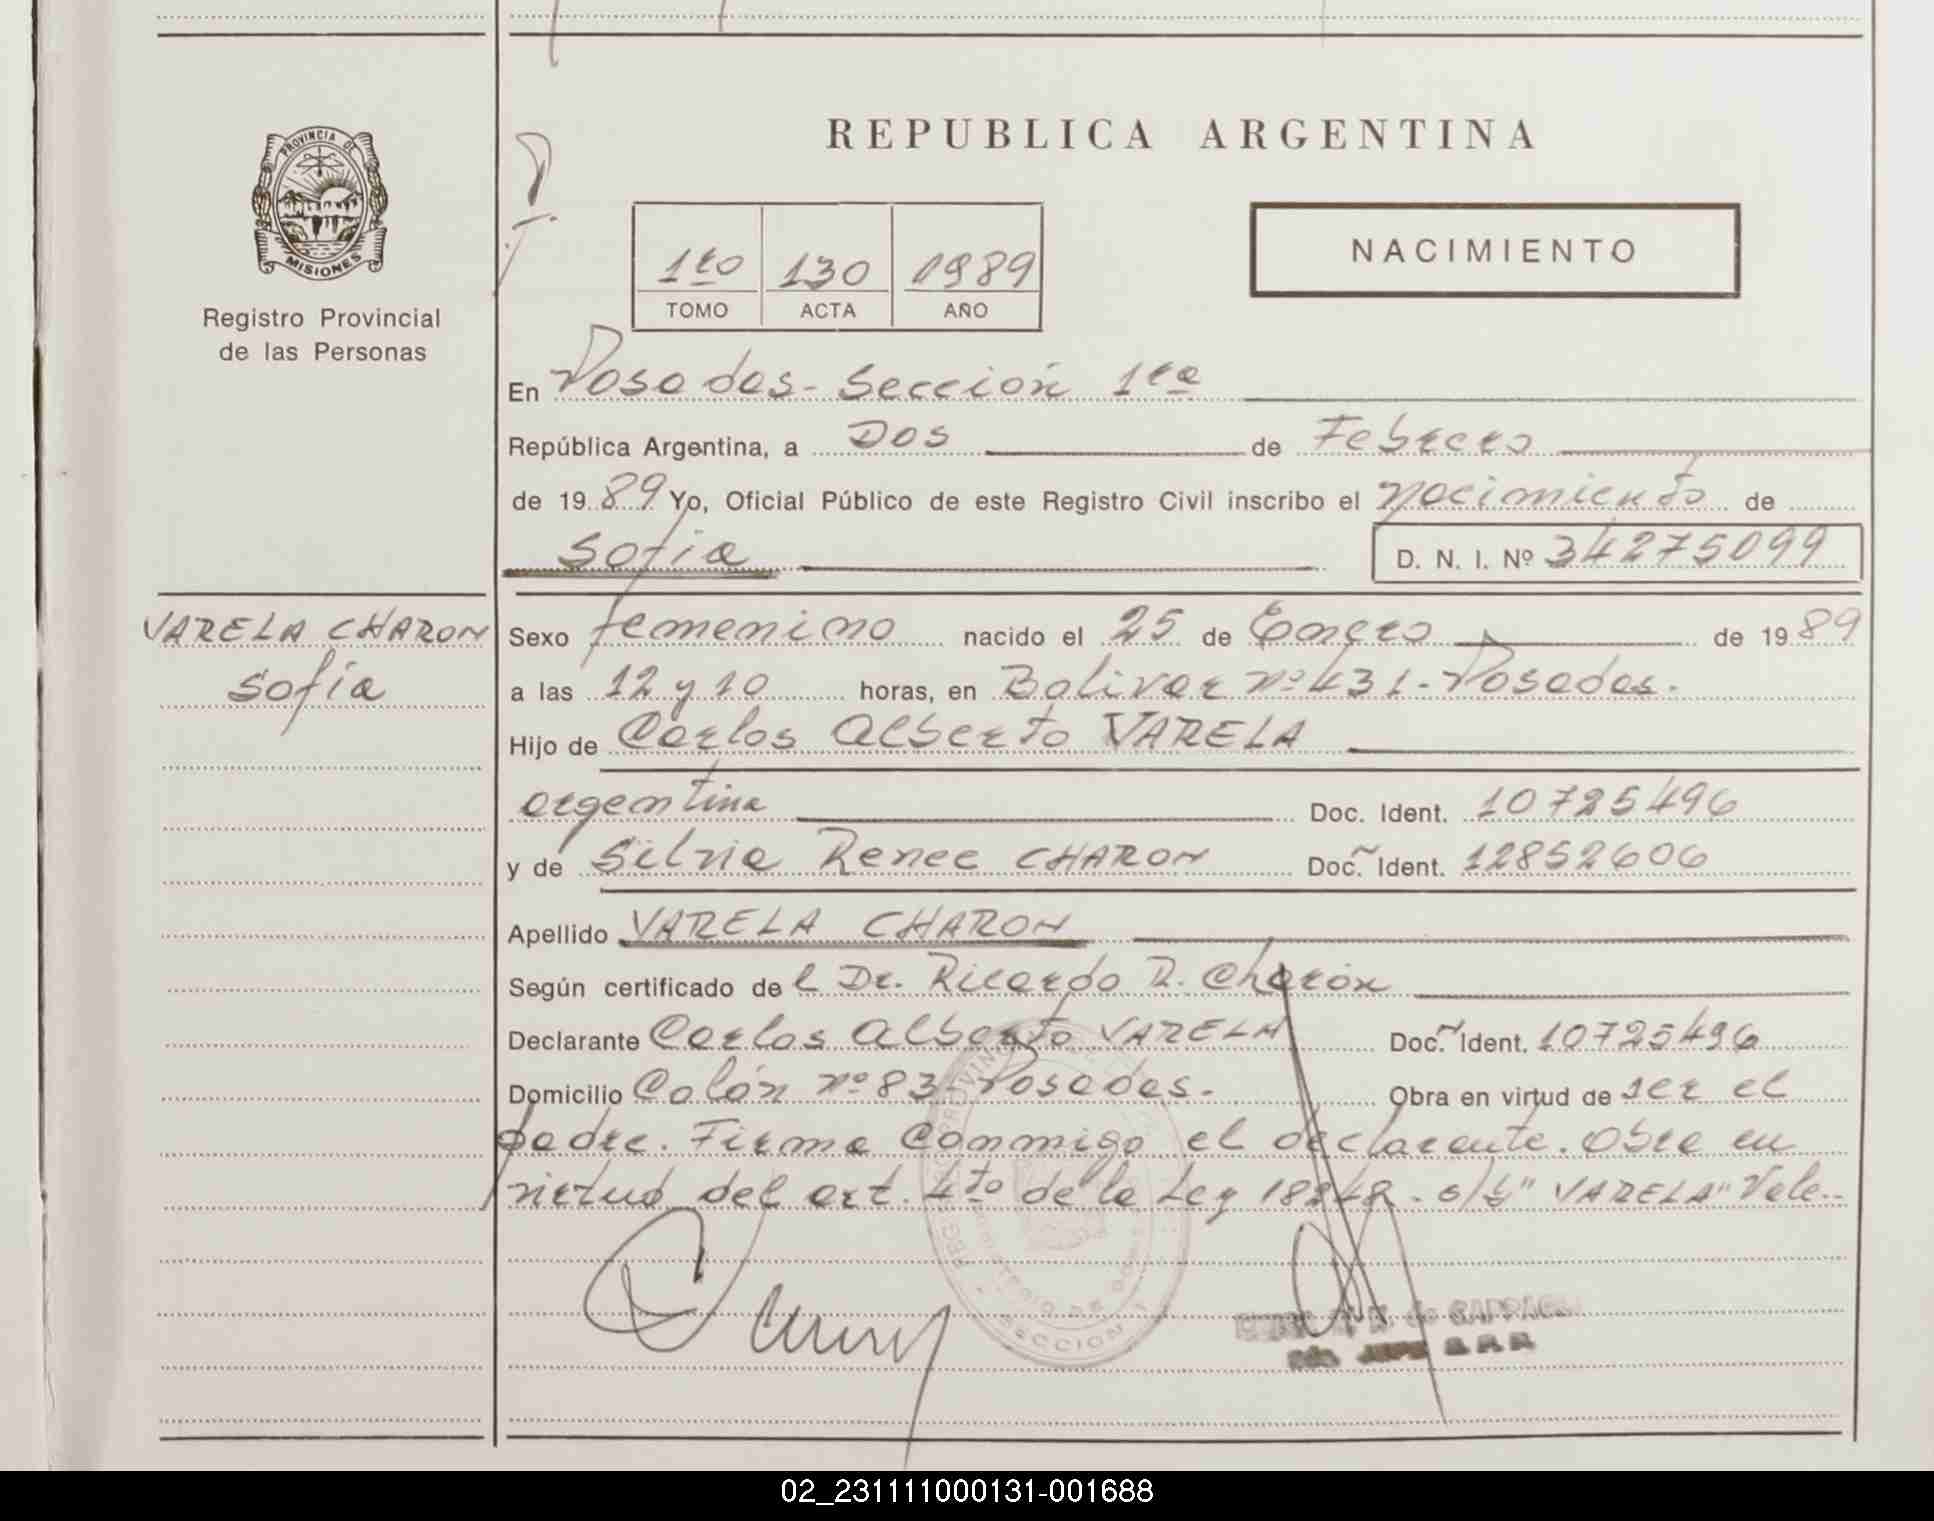 PROVINCIA DE
MISIONES
Registro Provincial
de las Personas
VARELA CHARON
Sofía
REPUBLICA ARGENTINA
1ro 130 1989
TOMO ACTA AÑO
NACIMIENTO
En Posadas - Sección 1ra
República Argentina, a Dos de Febrero
de 1989 Yo, Oficial Público de este Registro Civil inscribo el nacimiento de
Sofía D. N. I. Nº 34275099
Sexo femenino nacido el 25 de Enero de 1989
a las 12 y 10 horas, en Bolivar nº 431 - Posadas.
Hijo de Carlos Alberto VARELA
argentina Doc. Ident. 10725496
y de Silvia Renee CHARON Doc. Ident. 12852606
Apellido VARELA CHARON
Según certificado de l Dr. Ricardo R. Charón
Declarante Carlos Alberto VARELA Doc. Ident. 10725496
Domicilio Colón nº 83 - Posadas. Obra en virtud de ser el
padre. Firma conmigo el declarante. Obra en
virtud del art. 4to de la Ley 18248 - s/b "VARELA" Vale.-
SECCION
02_231111000131-001688